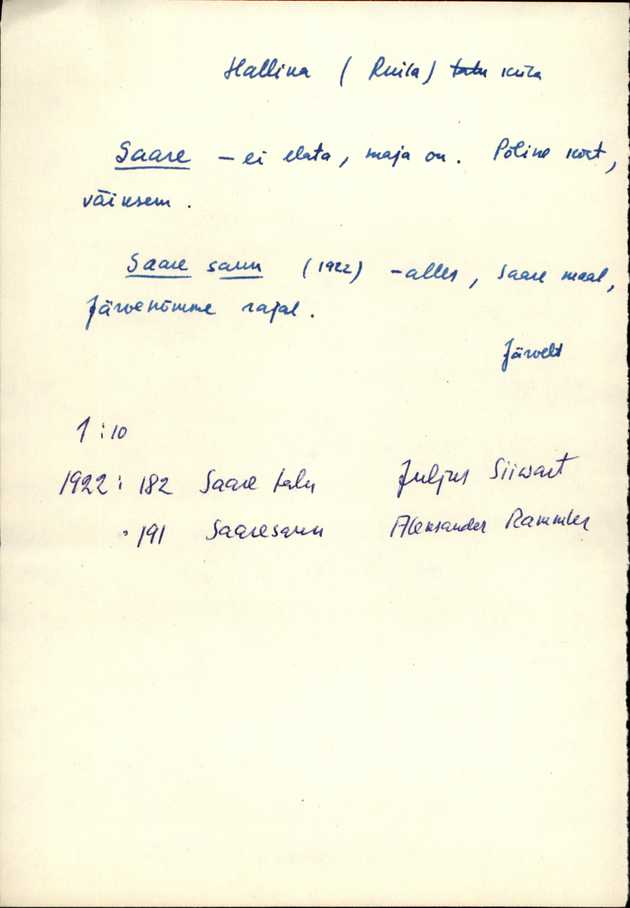 Hallina (Ruila) talu küla
Saare – ei elata, maja on. Põline koht,
väiksem.
Saare saun (1922) – alles, Saare maal,
Järvenõmme rajal.
Järvelt
1:10
1922: 182 Saare talu Juljus Siiwart
" 191 Saaresaun Aleksander Rammler